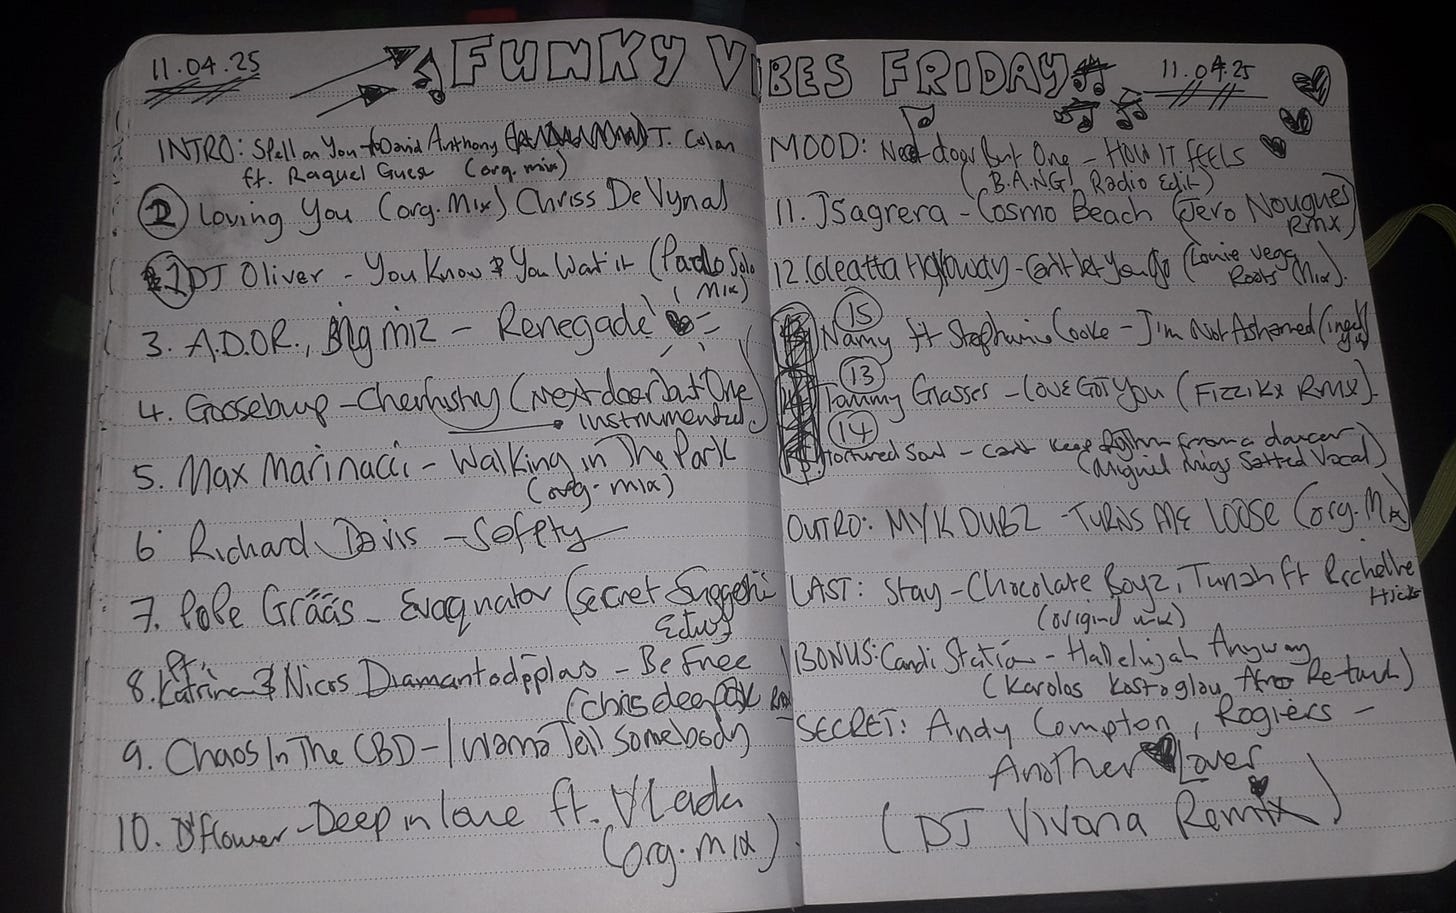 11.04.25
FUNKY VIBES FRIDAY
11.04.25
INTRO: Spell on You David Anthony T. Colan
ft. Raquel Gues (org. mix)
2 Loving You (org. Mix) Chriss DeVynal
1 DJ Oliver - You Know & You Wat it (Paolo Solo
Mix)
3. A.D.O.R., Big miz - Renegade
4. Goosebump - Chemistry (Next door but One
instrumental)
5. Max Marinacci - Walking in The Park
(org. mix)
6. Richard Davis - Safety
7. Pope Grääs - Evaqnator (Secret
8. Katrina & Nicos - Be Free
(Chris deepak
9. Chaos In The CBD - I Wanna Tell Somebody
10. D'flower - Deep in love ft. Vlada
(org. mix)
MOOD: Next door But One - HOW IT FEELS
(B.A.N.G! Radio Edit)
11. JSagrera - Cosmo Beach (Jero Nougues
Rmx)
12. Coleatta Holloway - Cant let You go (Louie Vega
Roots Mix).
15 Namy ft Stephanie Cooke - I'm Not Ashamed
13 Tommy Glasses - Love Got You (Fizzikx Rmx).
14 Tortured Soul - Cant keep from a dancer
(Miguel Migs Salted Vocal)
OUTRO: MYK DUBZ - TURNS ME LOOSE (org. Mix)
LAST: Stay - Chocolate Boyz, Tunzh ft Rechelhe
Hicks
(original mix)
BONUS: Candi Station - Hallelujah Anyway
(Karolos Kostoglou Afro Re-touch)
SECRET: Andy Compton, Rogiers -
Another Lover
(DJ Vivona Remix)